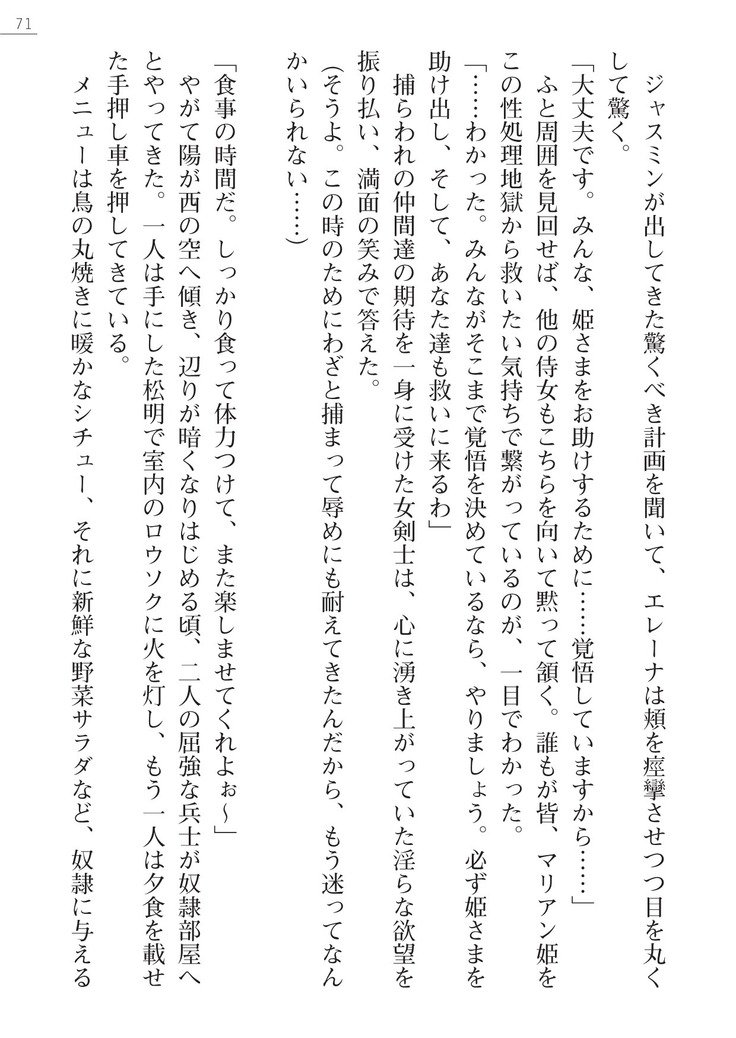 71
ジャスミンが出してきた驚くべき計画を聞いて、エレーナは頬を痙攣させつつ目を丸く
して驚く。
「大丈夫です。みんな、姫さまをお助けするために……覚悟していますから……」
ふと周囲を見回せば、他の侍女もこちらを向いて黙って頷く。誰もが皆、マリアン姫を
この性処理地獄から救いたい気持ちで繋がっているのが、一目でわかった。
「……わかった。みんながそこまで覚悟を決めているなら、やりましょう。必ず姫さまを
助け出し、そして、あなた達も救いに来るわ」
捕らわれの仲間達の期待を一身に受けた女剣士は、心に湧き上がっていた淫らな欲望を
振り払い、満面の笑みで答えた。
(そうよ。この時のためにわざと捕まって辱めにも耐えてきたんだから、もう迷ってなん
かいられない……)
「食事の時間だ。しっかり食って体力つけて、また楽しませてくれよぉ～」
やがて陽が西の空へ傾き、辺りが暗くなりはじめる頃、二人の屈強な兵士が奴隷部屋へ
とやってきた。一人は手にした松明で室内のロウソクに火を灯し、もう一人は夕食を載せ
た手押し車を押してきている。
メニューは鳥の丸焼きに暖かなシチュー、それに新鮮な野菜サラダなど、奴隷に与える